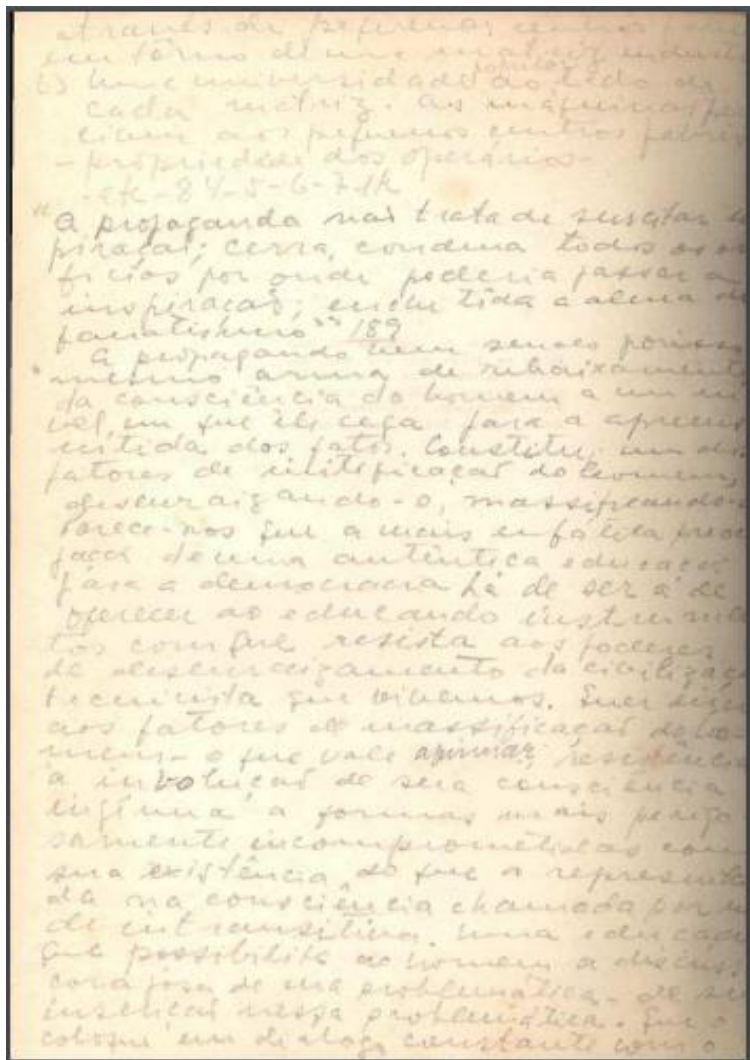 através de pequenos centros
em tôrno de uma matriz
b) Uma universidade popular ao lado de
cada matriz. As máquinas
aos pequenos centros
- propriedade dos operários -
- etc - 84-5-6-7.
"A propaganda não trata de suscitar
cerra, condena todos os
fícios por onde poderia passar a
inspiração; a alma de
fanatismo" 189
A propaganda vem sendo por isso
mesmo arma de rebaixamento
da consciência do homem a um ní
vel, em que êle cega para a
nítida dos fatos. Constitui um dos
fatores de do homem,
desenraizando-o, massificando-o
Parece-nos que a mais enfática
de uma autêntica educação
para a democracia há de ser a de
oferecer ao educando instrumen
tos com que resista aos poderes
de desenraizamento da civilização
tecnicista que vivemos. Quer dizer
aos fatores de massificação do ho-
mem - o que vale afirmar, resistência
a involução de sua consciência
ingênua a formas mais perigo
samente incomprometidas com
sua existência do que a representa
da na consciência chamada por nós
de intransitiva. Uma educação
que possibilite ao homem a discussão
corajosa de sua problemática. de sua
inserção nessa problemática. Que o
coloque em diálogo constante com o